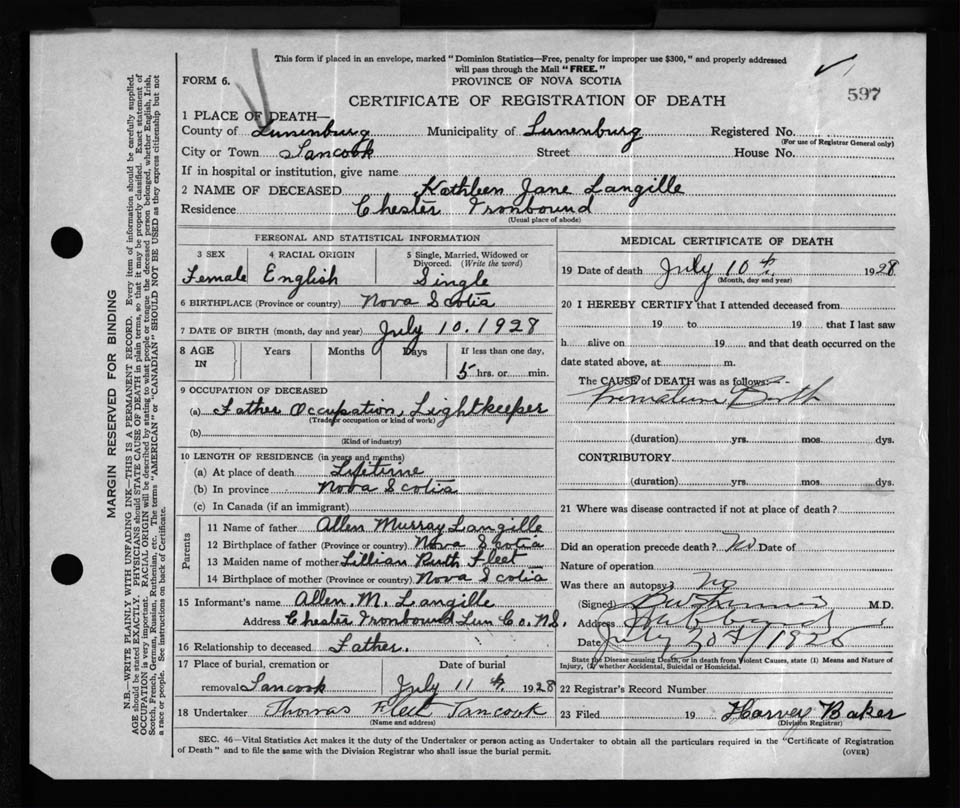 This form if placed in an envelope, marked "Dominion Statistics—Free, penalty for improper use $300," and properly addressed
will pass through the Mail "FREE."
FORM 6.
PROVINCE OF NOVA SCOTIA
597
CERTIFICATE OF REGISTRATION OF DEATH
1 PLACE OF DEATH—
County of Lunenburg Municipality of Lunenburg Registered No.
(For use of Registrar General only)
City or Town Tancook Street House No.
If in hospital or institution, give name
2 NAME OF DECEASED Kathleen Jane Langille
Residence Chester Ironbound
(Usual place of abode)
PERSONAL AND STATISTICAL INFORMATION
3 SEX 4 RACIAL ORIGIN 5 Single, Married, Widowed or
Divorced. (Write the word)
Female English Single
6 BIRTHPLACE (Province or country) Nova Scotia
7 DATE OF BIRTH (month, day and year) July 10. 1928
8 AGE IN Years Months Days If less than one day,
5 hrs. or min.
9 OCCUPATION OF DECEASED
(a) Father Occupation, Lightkeeper
(Trade, occupation or kind of work)
(b)
(Kind of industry)
10 LENGTH OF RESIDENCE (in years and months)
(a) At place of death Lifetime
(b) In province Nova Scotia
(c) In Canada (if an immigrant)
Parents
11 Name of father Allen Murray Langille
12 Birthplace of father (Province or country) Nova Scotia
13 Maiden name of mother Lillian Ruth Fleet
14 Birthplace of mother (Province or country) Nova Scotia
15 Informant's name Allen. M. Langille
Address Chester Ironbound Lun Co. N.S.
16 Relationship to deceased Father.
17 Place of burial, cremation or Date of burial
removal Tancook July 11th, 1928
18 Undertaker Thomas Fleet Tancook
(Name and address)
MEDICAL CERTIFICATE OF DEATH
19 Date of death July 10th, 1928
(Month, day and year)
20 I HEREBY CERTIFY that I attended deceased from
19 to 19 that I last saw
h alive on 19 and that death occurred on the
date stated above, at m.
The CAUSE of DEATH was as follows:-
Premature Birth
(duration) yrs. mos. dys.
CONTRIBUTORY
(duration) yrs. mos. dys.
21 Where was disease contracted if not at place of death?
Did an operation precede death? No Date of
Nature of operation
Was there an autopsy? no
(Signed) M.D.
Address
Date July
State the Disease causing Death, or in death from Violent Causes, state (1) Means and Nature of
Injury, (2) whether Accidental, Suicidal or Homicidal.
22 Registrar's Record Number
23 Filed 19 Harvey Baker
(Division Registrar)
SEC. 46—Vital Statistics Act makes it the duty of the Undertaker or person acting as Undertaker to obtain all the particulars required in the "Certificate of Registration
of Death" and to file the same with the Division Registrar who shall issue the burial permit.
(OVER)
MARGIN RESERVED FOR BINDING
N.B.—WRITE PLAINLY WITH UNFADING INK—THIS IS A PERMANENT RECORD. Every item of information should be carefully supplied.
AGE should be stated EXACTLY. PHYSICIANS should STATE CAUSE OF DEATH in plain terms, so that it may be properly classified. Exact statement of
OCCUPATION is very important. RACIAL ORIGIN will be described by stating to what people or tongue the deceased person belonged, whether English, Irish,
Scotch, French, German, Russian, Ruthenian, etc. The terms "AMERICAN" or "CANADIAN" SHOULD NOT BE USED as they express citizenship but not
a race or people. See instructions on back of Certificate.